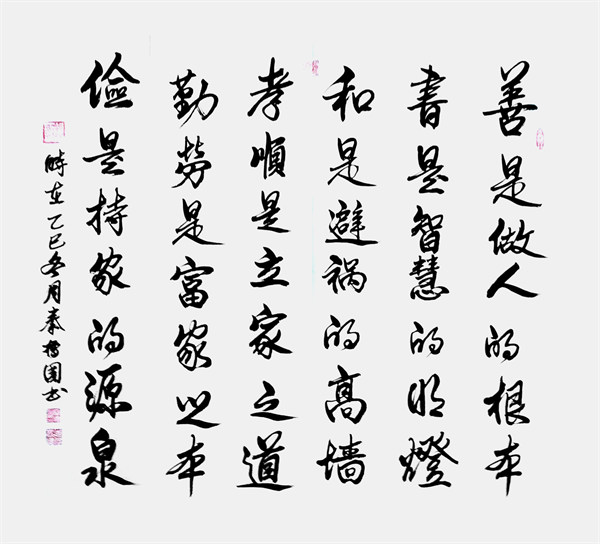 善是做人的根本
書是智慧的明燈
和是避祸的高墙
孝順是立家之道
勤劳是富家之本
儉是持家的源泉
時在乙巳冬月秦
书